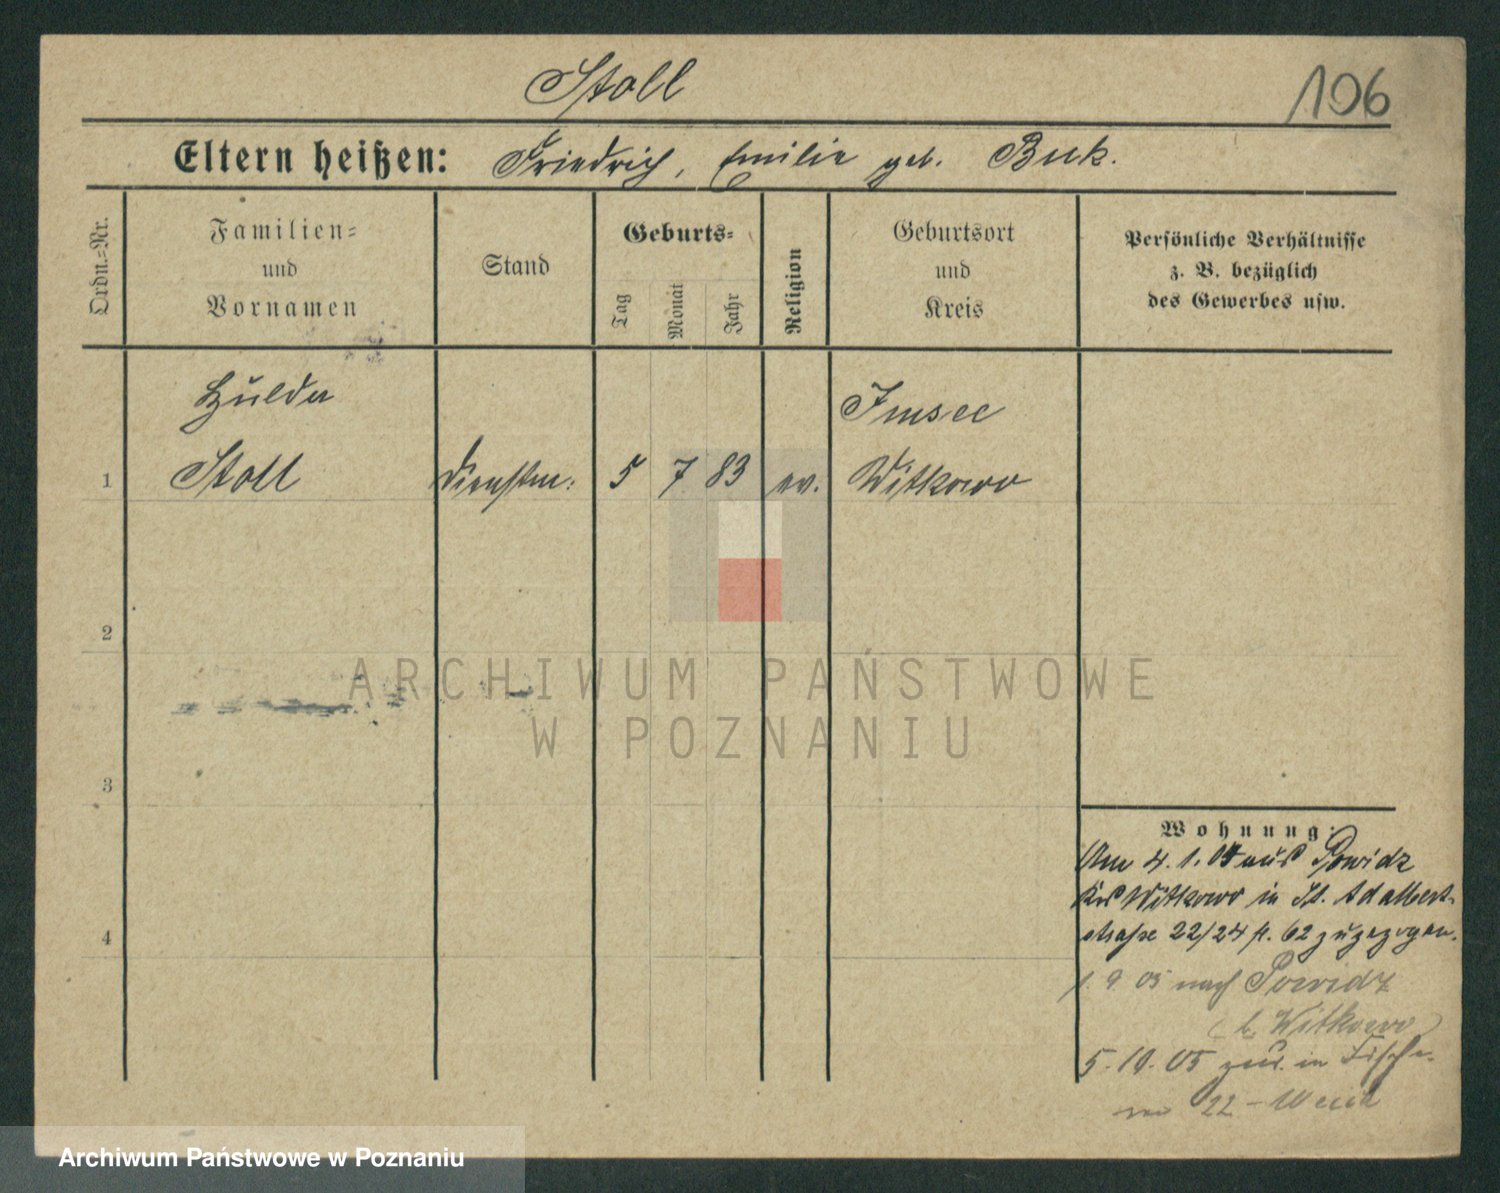 Stoll
106
Eltern heißen: Friedrich, Emilie geb. Buk.
Ordn.=Nr.
Familien=
und
Vornamen
Stand
Geburts=
Tag
Monat
Jahr
Religion
Geburtsort
und
Kreis
Persönliche Verhältnisse
z. B. bezüglich
des Gewerbes usw.
Hulda
Imsee
1 Stoll Dienstm: 5 7 83 ev. Witkowo
2
3
4
ARCHIWUM PAŃSTWOWE
W POZNANIU
Wohnung:
Am 4. 1. 05 aus Powidz
Krs Witkowo in St. Adalbert-
straße 22/24 60 zugezogen.
1. 9. 05 nach Powidz
(b. Witkowo)
5. 10. 05 zur. in
22 -
Archiwum Państwowe w Poznaniu